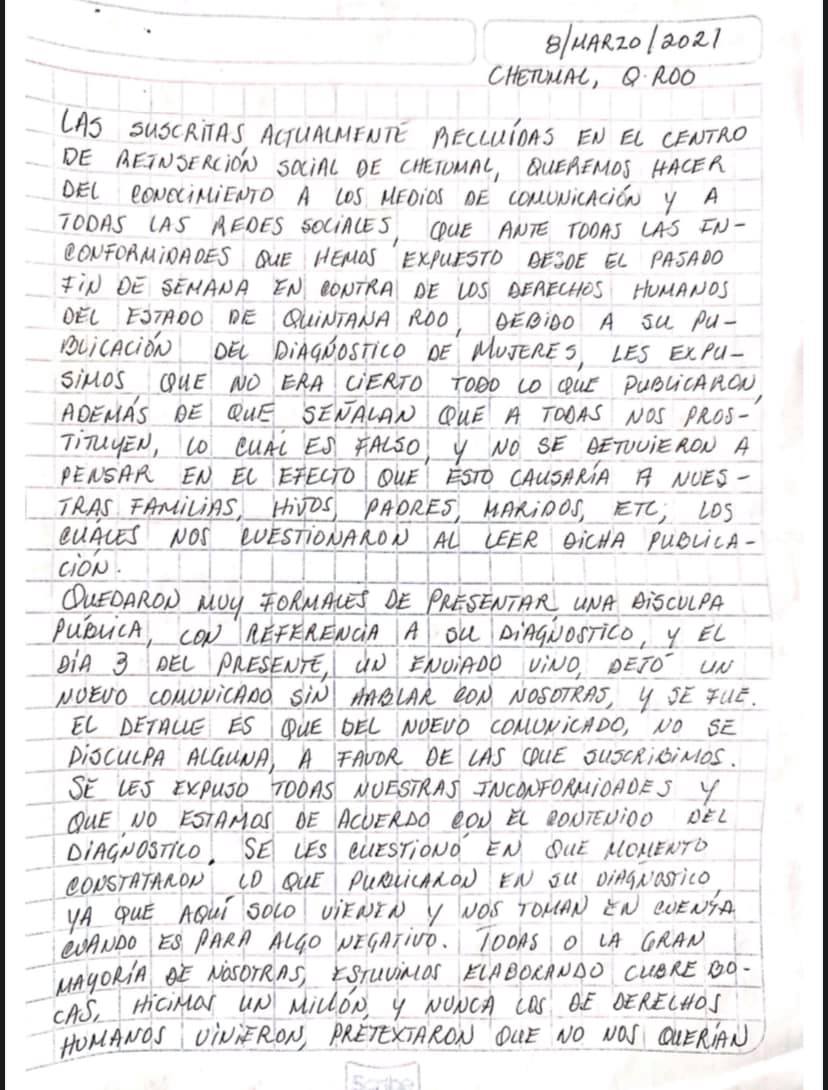 8/MARZO/2021
CHETUMAL, Q. ROO
LAS SUSCRITAS ACTUALMENTE RECLUÍDAS EN EL CENTRO
DE REINSERCIÓN SOCIAL DE CHETUMAL, QUEREMOS HACER
DEL CONOCIMIENTO A LOS MEDIOS DE COMUNICACIÓN Y A
TODAS LAS REDES SOCIALES, QUE ANTE TODAS LAS IN-
CONFORMIDADES QUE HEMOS EXPUESTO DESDE EL PASADO
FIN DE SEMANA EN CONTRA DE LOS DERECHOS HUMANOS
DEL ESTADO DE QUINTANA ROO, DEBIDO A SU PU-
BLICACIÓN DEL DIAGNÓSTICO DE MUJERES, LES EXPU-
SIMOS QUE NO ERA CIERTO TODO LO QUE PUBLICARON,
ADEMÁS DE QUE SEÑALAN QUE A TODAS NOS PROS-
TITUYEN, LO CUAL ES FALSO, Y NO SE DETUVIERON A
PENSAR EN EL EFECTO QUE ÉSTO CAUSARÍA A NUES-
TRAS FAMILIAS, HIJOS, PADRES, MARIDOS, ETC, LOS
CUÁLES NOS CUESTIONARON AL LEER DICHA PUBLICA-
CIÓN.
QUEDARON MUY FORMALES DE PRESENTAR UNA DISCULPA
PÚBLICA, CON REFERENCIA A SU DIAGNÓSTICO, Y EL
DÍA 3 DEL PRESENTE, UN ENVIADO VINO, DEJÓ UN
NUEVO COMUNICADO SIN HABLAR CON NOSOTRAS, Y SE FUÉ.
EL DETALLE ES QUE DEL NUEVO COMUNICADO, NO SE
DISCULPA ALGUNA, A FAVOR DE LAS QUE SUSCRIBIMOS.
SE LES EXPUSO TODAS NUESTRAS INCONFORMIDADES Y
QUE NO ESTAMOS DE ACUERDO CON EL CONTENIDO DEL
DIAGNÓSTICO. SE LES CUESTIONÓ EN QUE MOMENTO
CONSTATARON LO QUE PUBLICARON EN SU DIAGNOSTICO,
YA QUE AQUÍ SOLO VIENEN Y NOS TOMAN EN CUENTA
CUANDO ES PARA ALGO NEGATIVO. TODAS O LA GRAN
MAYORÍA DE NOSOTRAS, ESTUVIMOS ELABORANDO CUBRE BO-
CAS, HICIMOS UN MILLÓN, Y NUNCA LOS DE DERECHOS
HUMANOS VINIERON, PRETEXTARON QUE NO NOS QUERÍAN
Scribe